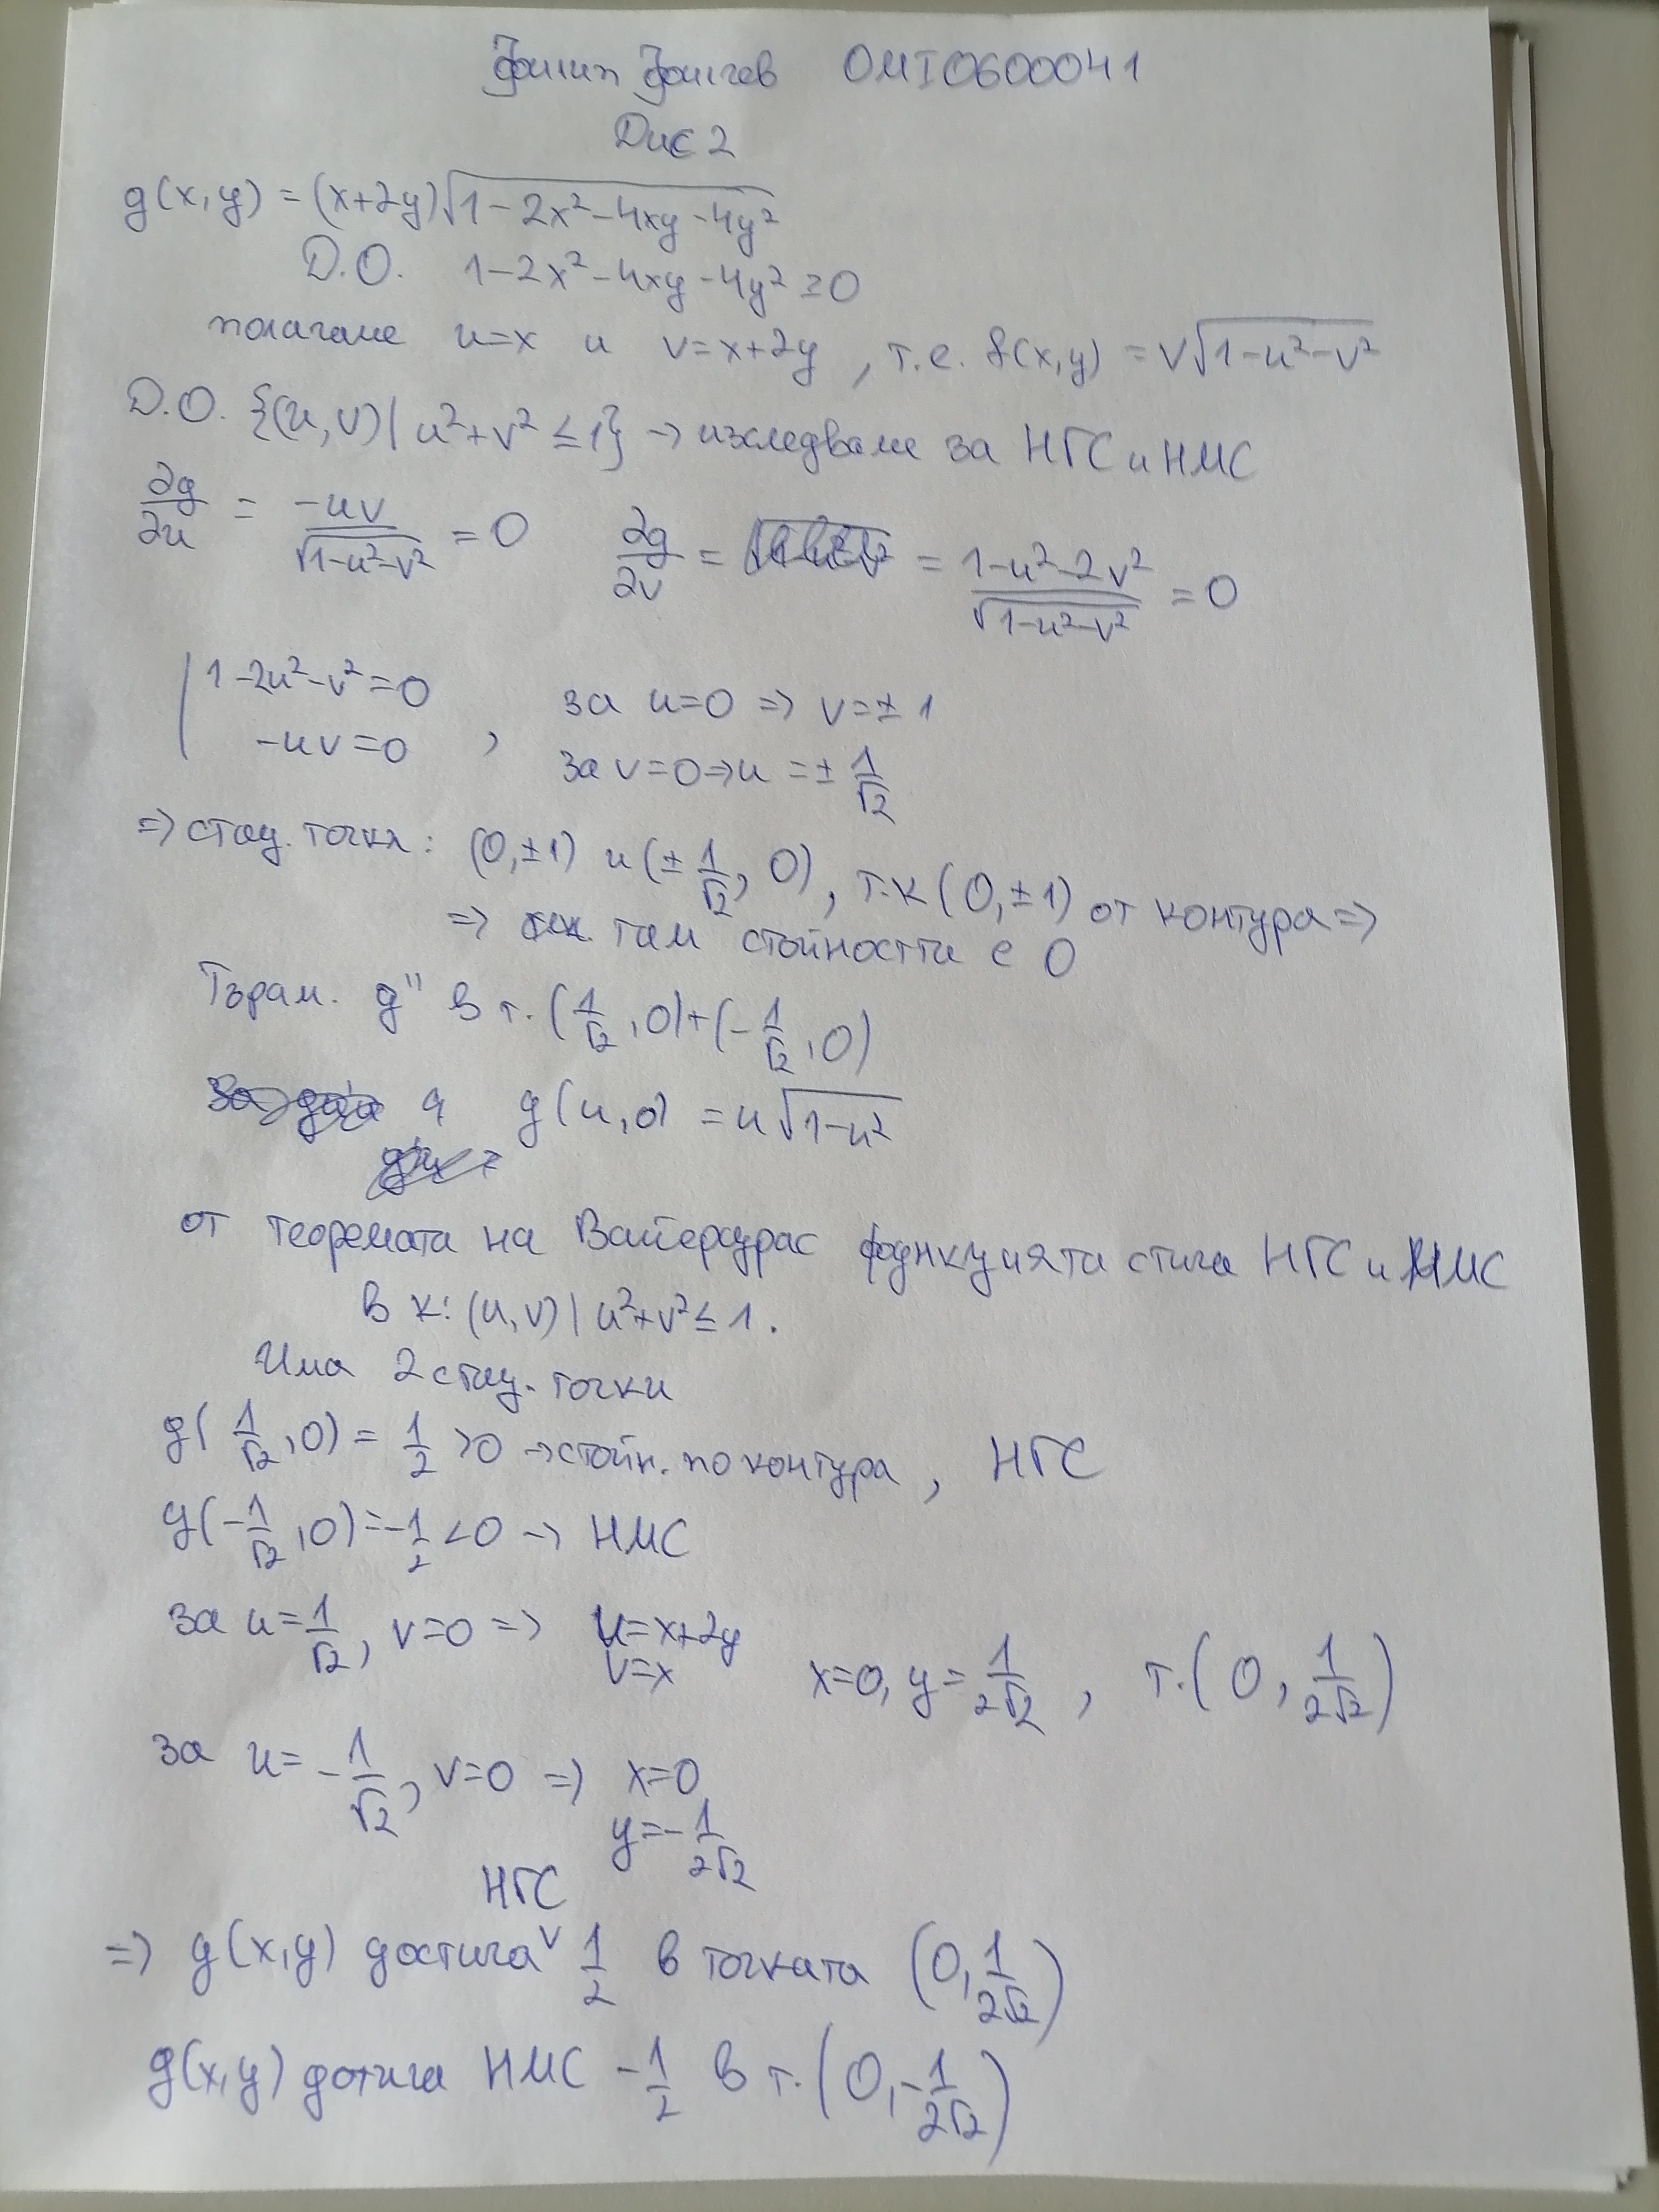 Филип Филчев 0MI0600041
Дис 2
g(x,y) = (x+2y)√(1-2x²-4xy-4y²)
Д.О. 1-2x²-4xy-4y² ≥ 0
полагаме u=x и v=x+2y, т.е. f(x,y) = v√(1-u²-v²)
Д.О. {(u,v) | u²+v² ≤ 1} → изследваме за НГС и НМС
∂g/∂u = -uv/√(1-u²-v²) = 0 ∂g/∂v = = (1-u²-2v²)/√(1-u²-v²) = 0
| 1-2u²-v²=0 за u=0 => v=±1
| -uv=0 , за v=0 => u=±1/√2
=> стац. точки: (0,±1) и (±1/√2, 0), т.к (0,±1) от контура =>
=> там стойността е 0
Търсим. g'' в т. (1/√2, 0) + (-1/√2, 0)
g(u,0) = u√(1-u²)
от теоремата на Вайерщрас функцията стига НГС и НМС
в K: (u,v) | u²+v² ≤ 1.
Има 2 стац. точки
g(1/√2, 0) = 1/2 > 0 → стойн. по контура, НГС
g(-1/√2, 0) = -1/2 < 0 → НМС
за u=1/√2, v=0 => u=x+2y
v=x x=0, y=1/2√2, т. (0, 1/2√2)
за u=-1/√2, v=0 => x=0
y=-1/2√2
НГС
=> g(x,y) достига ˅ 1/2 в точката (0, 1/2√2)
g(x,y) дотига НМС -1/2 в т. (0, -1/2√2)